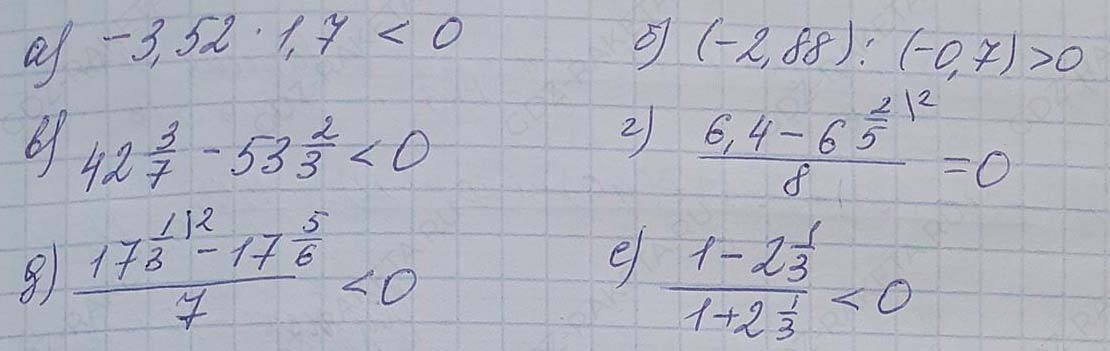 а) -3,52 · 1,7 < 0
б) (-2,88) : (-0,7) > 0
в) 42 3/7 - 53 2/3 < 0
г) (6,4 - 6 2/5 \2) / 8 = 0
д) (17 1/3 \2 - 17 5/6) / 7 < 0
е) (1 - 2 1/3) / (1 + 2 1/3) < 0